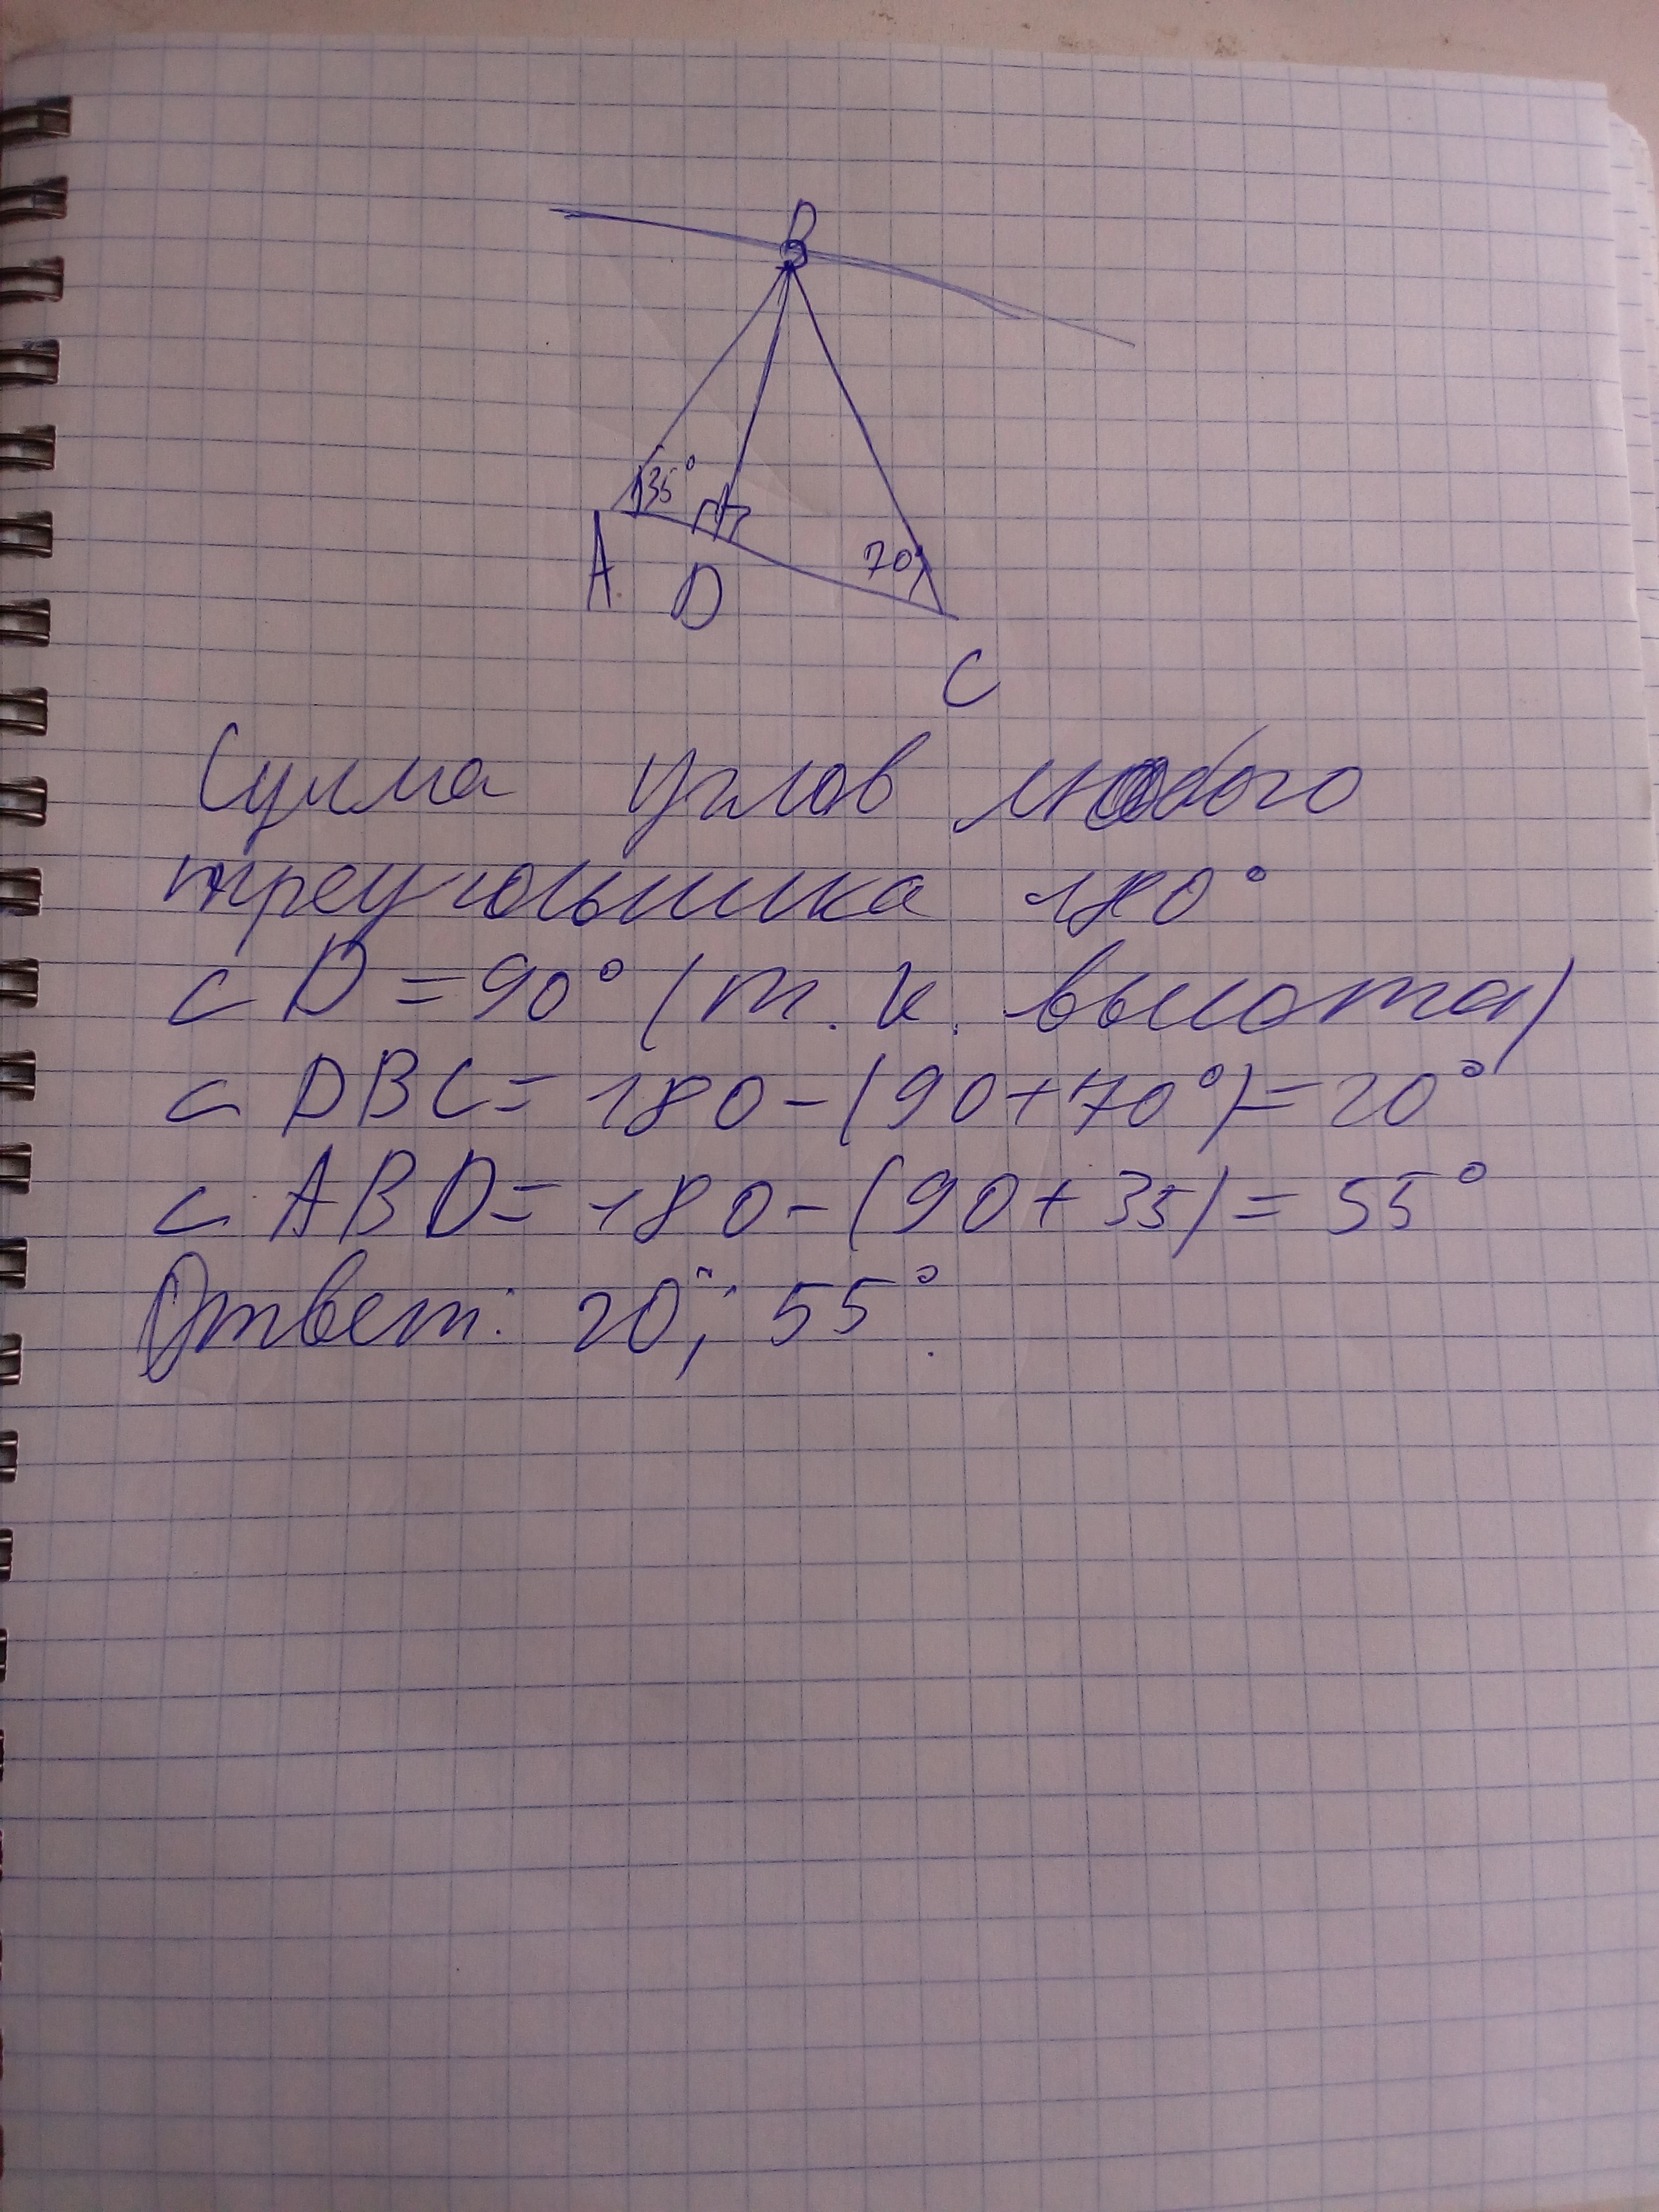 B
35°
70°
A D
C
Сумма углов любого
треугольника 180°
∠ D = 90° (т.к. высота)
∠ DBC = 180 - (90 + 70°) = 20°
∠ ABD = 180 - (90 + 35) = 55°
Ответ: 20°; 55°.